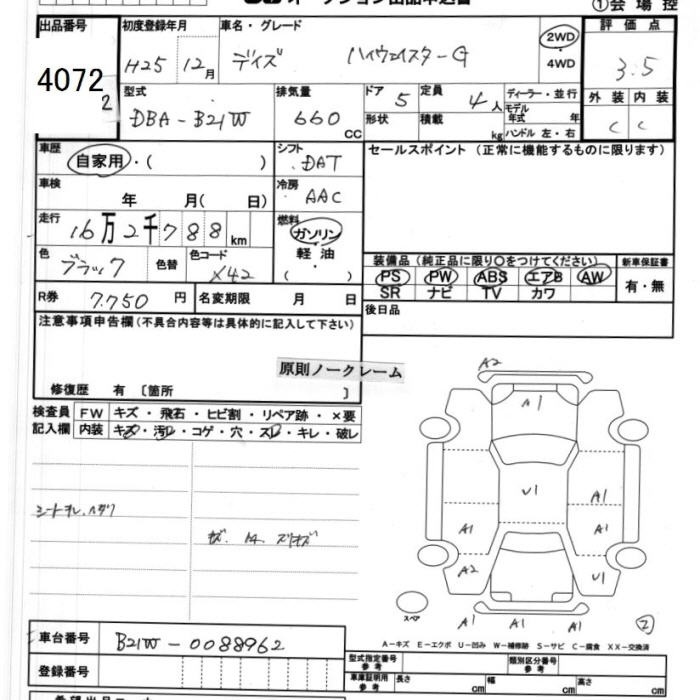 オークション出品申込書 ①会場控
出品番号 初度登録年月 車名・グレード 評価点
4072 H25 12月 デイズ ハイウェイスターG 2WD・4WD 3.5
2
型式 排気量 ドア 定員 ディーラー・並行 外装 内装
DBA-B21W 660 CC 5 4人 モデル年式 年 C C
形状 積載 kg ハンドル 左・右
車歴 シフト セールスポイント (正常に機能するものに限ります)
自家用・( ) DAT
車検 年 月( 日) 冷房 AAC
走行 16万2千788km 燃料 ガソリン・軽油 ( ・ )
色 ブラック 色替 色コード X42
装備品 (純正品に限り○をつけてください) 新車保証書
PS PW ABS エアB AW 有・無
SR ナビ TV カワ
R券 7.750円 名変期限 月 日 後日品
注意事項申告欄 (不具合内容等は具体的に記入して下さい)
原則ノークレーム
修復歴 有 〔箇所 〕
検査員 FW キズ・飛石・ヒビ割・リペア跡・×要
記入欄 内装 キズ・汚れ・コゲ・穴・スレ・キレ・破レ
A2
A1
U1 A1
A1 A1
シートヨレ.ヘタリ
A2 U1
スペア A1 A1 A1 2
A-キズ E-エクボ U-凹み W-補修跡 S-サビ C-腐食 XX-交換済
車台番号 B21W-0088962
型式指定番号 参考 類別区分番号 参考
登録番号 車庫証明用 参考 長さ cm 幅 cm 高さ cm